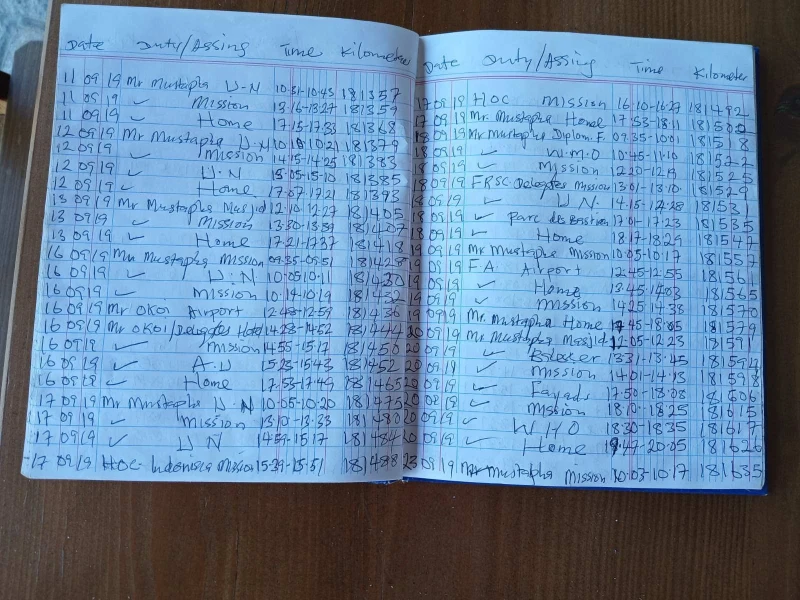 Date Duty/Assing Time Kilometer
11 09 19 Mr Mustapha U-N 10-31-10-45 181357
11 09 19 ✓ Mission 13-16-13-27 181359
11 09 19 ✓ Home 17-15-17-33 181368
12 09 19 Mr Mustapha U-N 10-10-10-21 181379
12 09 19 ✓ Mission 14-15-14-25 181383
12 09 19 ✓ U-N 15-05-15-10 181385
12 09 19 ✓ Home 17-07-17-21 181393
13 09 19 Mr Mustapha Masjid 12-10-12-27 181405
13 09 19 ✓ Mission 13-30-13-59 181407
13 09 19 ✓ Home 17-21-17-37 181418
16 09 19 Mr Mustapha Mission 09-35-09-51 181428
16 09 19 ✓ U-N 10-05-10-11 181430
16 09 19 ✓ Mission 10-14-10-19 181432
16 09 19 Mr OKOI Airport 12-48-12-59 181436
16 09 19 Mr OKOI/Delegates Hotel 14-28-14-52 181444
16 09 19 ✓ Mission 14-55-15-17 181450
16 09 19 ✓ A-U 15-23-15-43 181452
16 09 19 ✓ Home 17-53-17-49 181465
17 09 19 Mr Mustapha U-N 10-05-10-20 181475
17 09 19 ✓ Mission 13-10-13-33 181480
17 09 19 ✓ U N 14-59-15-17 181484
17 09 19 HOC Indonisia Mission 15-39-15-51 181488
Date Duty/Assing Time Kilometer
17 09 19 HOC Mission 16-10-16-27 181492
17 09 19 Mr Mustapha Home 17-53-18-11 181502
18 09 19 Mr Mustapha Diplom. F. 09-35-10-01 181518
18 09 19 ✓ W.M.O 10-45-11-10 181522
18 09 19 ✓ Mission 12-20-12-19 181525
18 09 19 FRSC-Delegates Mission 13-01-13-10 181529
18 09 19 ✓ U N- 14-15-14-28 181531
18 09 19 ✓ Parc des Bastion 17-01-17-23 181535
18 09 19 ✓ Home 18-17-18-29 181547
19 09 19 Mr Mustapha Mission 10-05-10-17 181557
19 09 19 FA Airport 12-45-12-55 181561
19 09 19 ✓ Home 13-45-14-03 181565
19 09 19 ✓ Mission 14-25-14-38 181570
19 09 19 Mr. Mustapha Home 17-45-18-05 181579
20 09 19 Mr Mustapha Masjid 12-05-12-23 181591
20 09 19 ✓ 13-31-13-45 181594
20 09 19 ✓ Mission 14-01-14-13 181598
20 09 19 ✓ 17-50-18-08 181606
20 09 19 ✓ Mission 18-10-18-25 181615
20 09 19 ✓ W H O 18-30-18-35 181617
20 09 19 ✓ Home 20-05 181626
23 09 19 Mr Mustapha Mission 10-03-10-17 181635